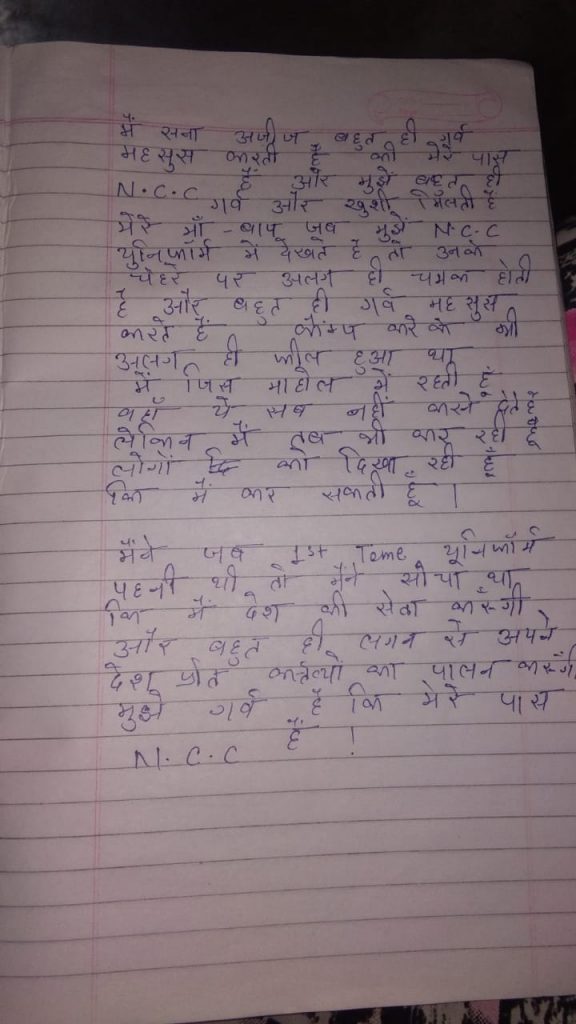 मैं सना अज़ीज बहुत ही गर्व
महसुस करती हैं की मेरे पास
N.C.C हैं और मुझे बहुत ही
गर्व और खुशी मिलती हैं
मेरे माँ-बाप जब मुझे N.C.C
युनिफॉर्म में देखते हैं तो उनके
चेहरे पर अलग ही चमक होती
है और बहुत ही गर्व महसुस
करते हैं कैम्प करके भी
अलग ही फील हुआ था
में जिस माहोल में रहती हूँ
वहाँ ये सब नहीं करने देते हैं
लेकिन में तब भी कर रही हूँ
लोगों को दिखा रही हूँ
कि में कर सकती हूँ ।
मैंने जब 1st Tame यूनिफॉर्म
पहनी थी तो मैंने सोचा था
कि में देश की सेवा करूँगी
और बहुत ही लगन से अपने
देश प्रति कर्त्तव्यों का पालन करूंगी
मुझे गर्व हैं कि मेरे पास
N.C.C हैं !